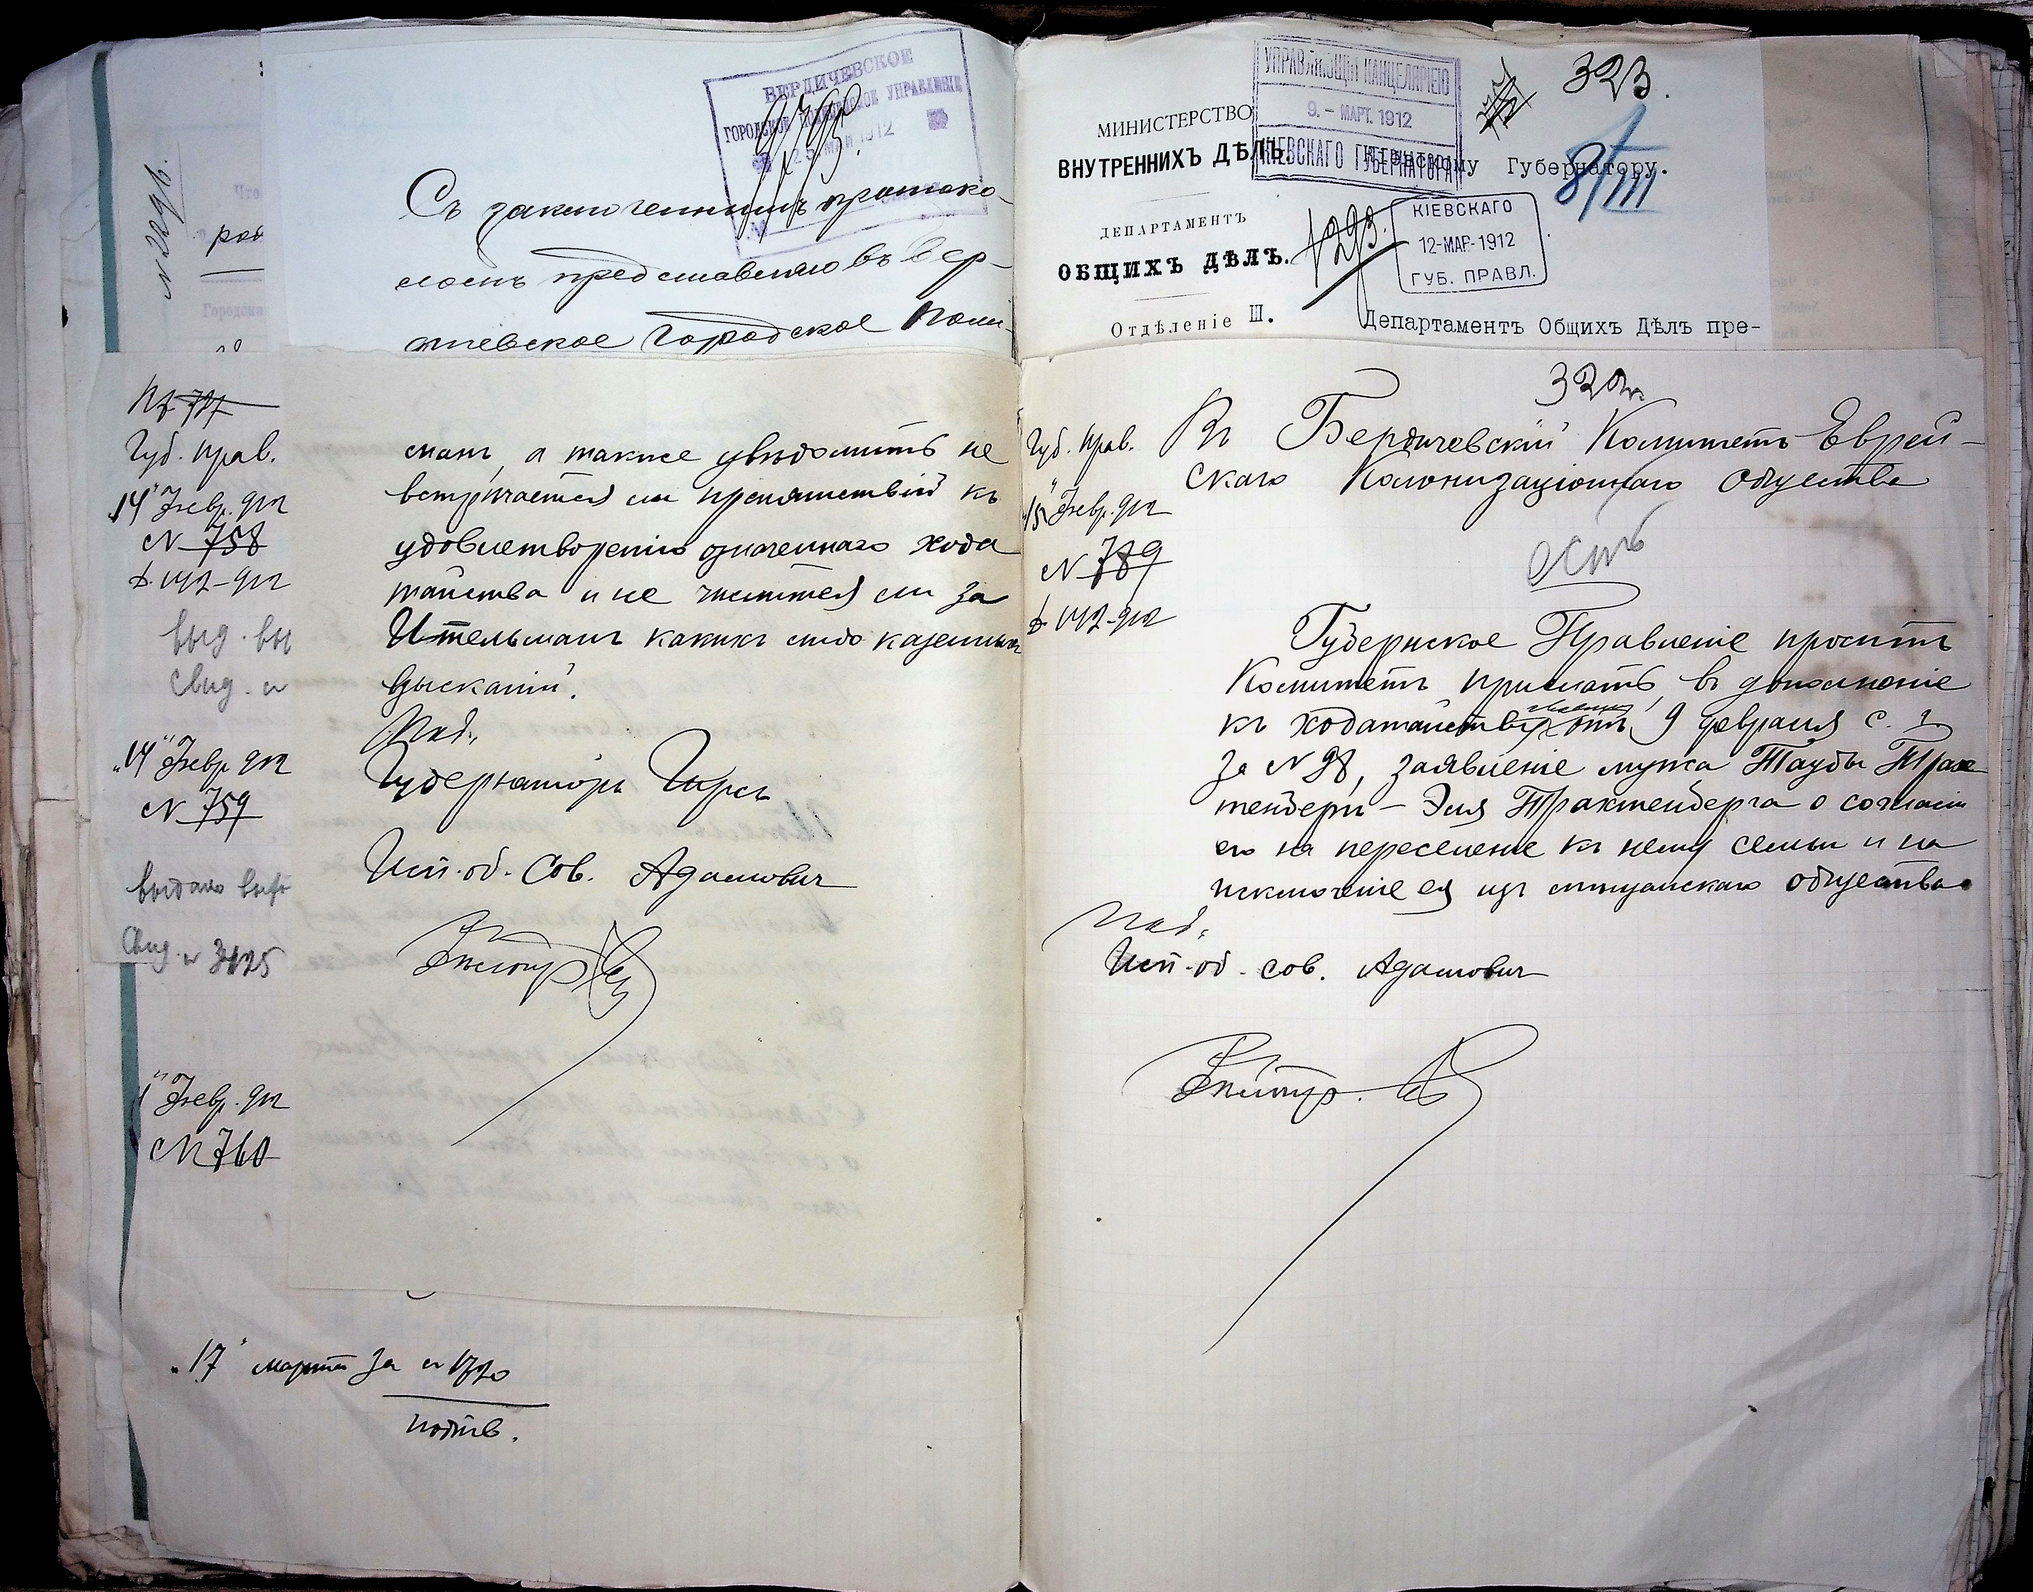 БЕРДИЧЕВСКОЕ
ГОРОДСКОЕ ПОЛИЦЕЙСКОЕ УПРАВЛЕНІЕ
1912
Съ заключеннымъ протоко-
ломъ представляю въ Бер-
дичевское Городское Поли-
№ 2291.
рав
Городска
№ 727
Губ. Прав.
"14" Февр. 912
№ 758
выд. вы
Свид. №
"14" Февр 912
№ 759
выдано
Свид. № 3425
Февр. 912
№ 760
манъ, а также увѣдомить не
встрѣчается ли препятствій къ
удовлетворенію означеннаго хода
тайства и не числится ли за
Ительманъ какихъ либо казенныхъ
взысканій.
Под.
Губернаторъ Гирсъ
Исп. об. Сов. Адамовичъ
"17" марта за № 1720
подтв.
323.
УПРАВЛЯЮЩІЙ КАНЦЕЛЯРІЕЮ
9.- МАРТ. 1912
КІЕВСКАГО ГУБЕРНАТОРА
МИНИСТЕРСТВО
ВНУТРЕННИХЪ ДѢЛЪ.
Кіевскому Губернатору.
8/III
ДЕПАРТАМЕНТЪ
ОБЩИХЪ ДѢЛЪ.
1293.
КІЕВСКАГО
12-МАР.-1912
ГУБ. ПРАВЛ.
Отдѣленіе III.
Департаментъ Общихъ Дѣлъ пре-
Губ. Прав.
"15" Февр. 912
№ 789
Въ Бердичевскій Комитетъ Еврей-
скаго Колонизаціоннаго общества
есть
Губернское Правленіе проситъ
Комитетъ прислать, въ дополненіе
къ ходатайству отъ 9 февраля с. г.
за № 98, заявленіе мужа Таубы Трах
тенбергъ - Эля Трахтенберга о согласіи
его на переселеніе къ нему семьи и на
исключеніе ея изъ мѣщанскаго общества.
Под.
Исп. об. сов. Адамовичъ